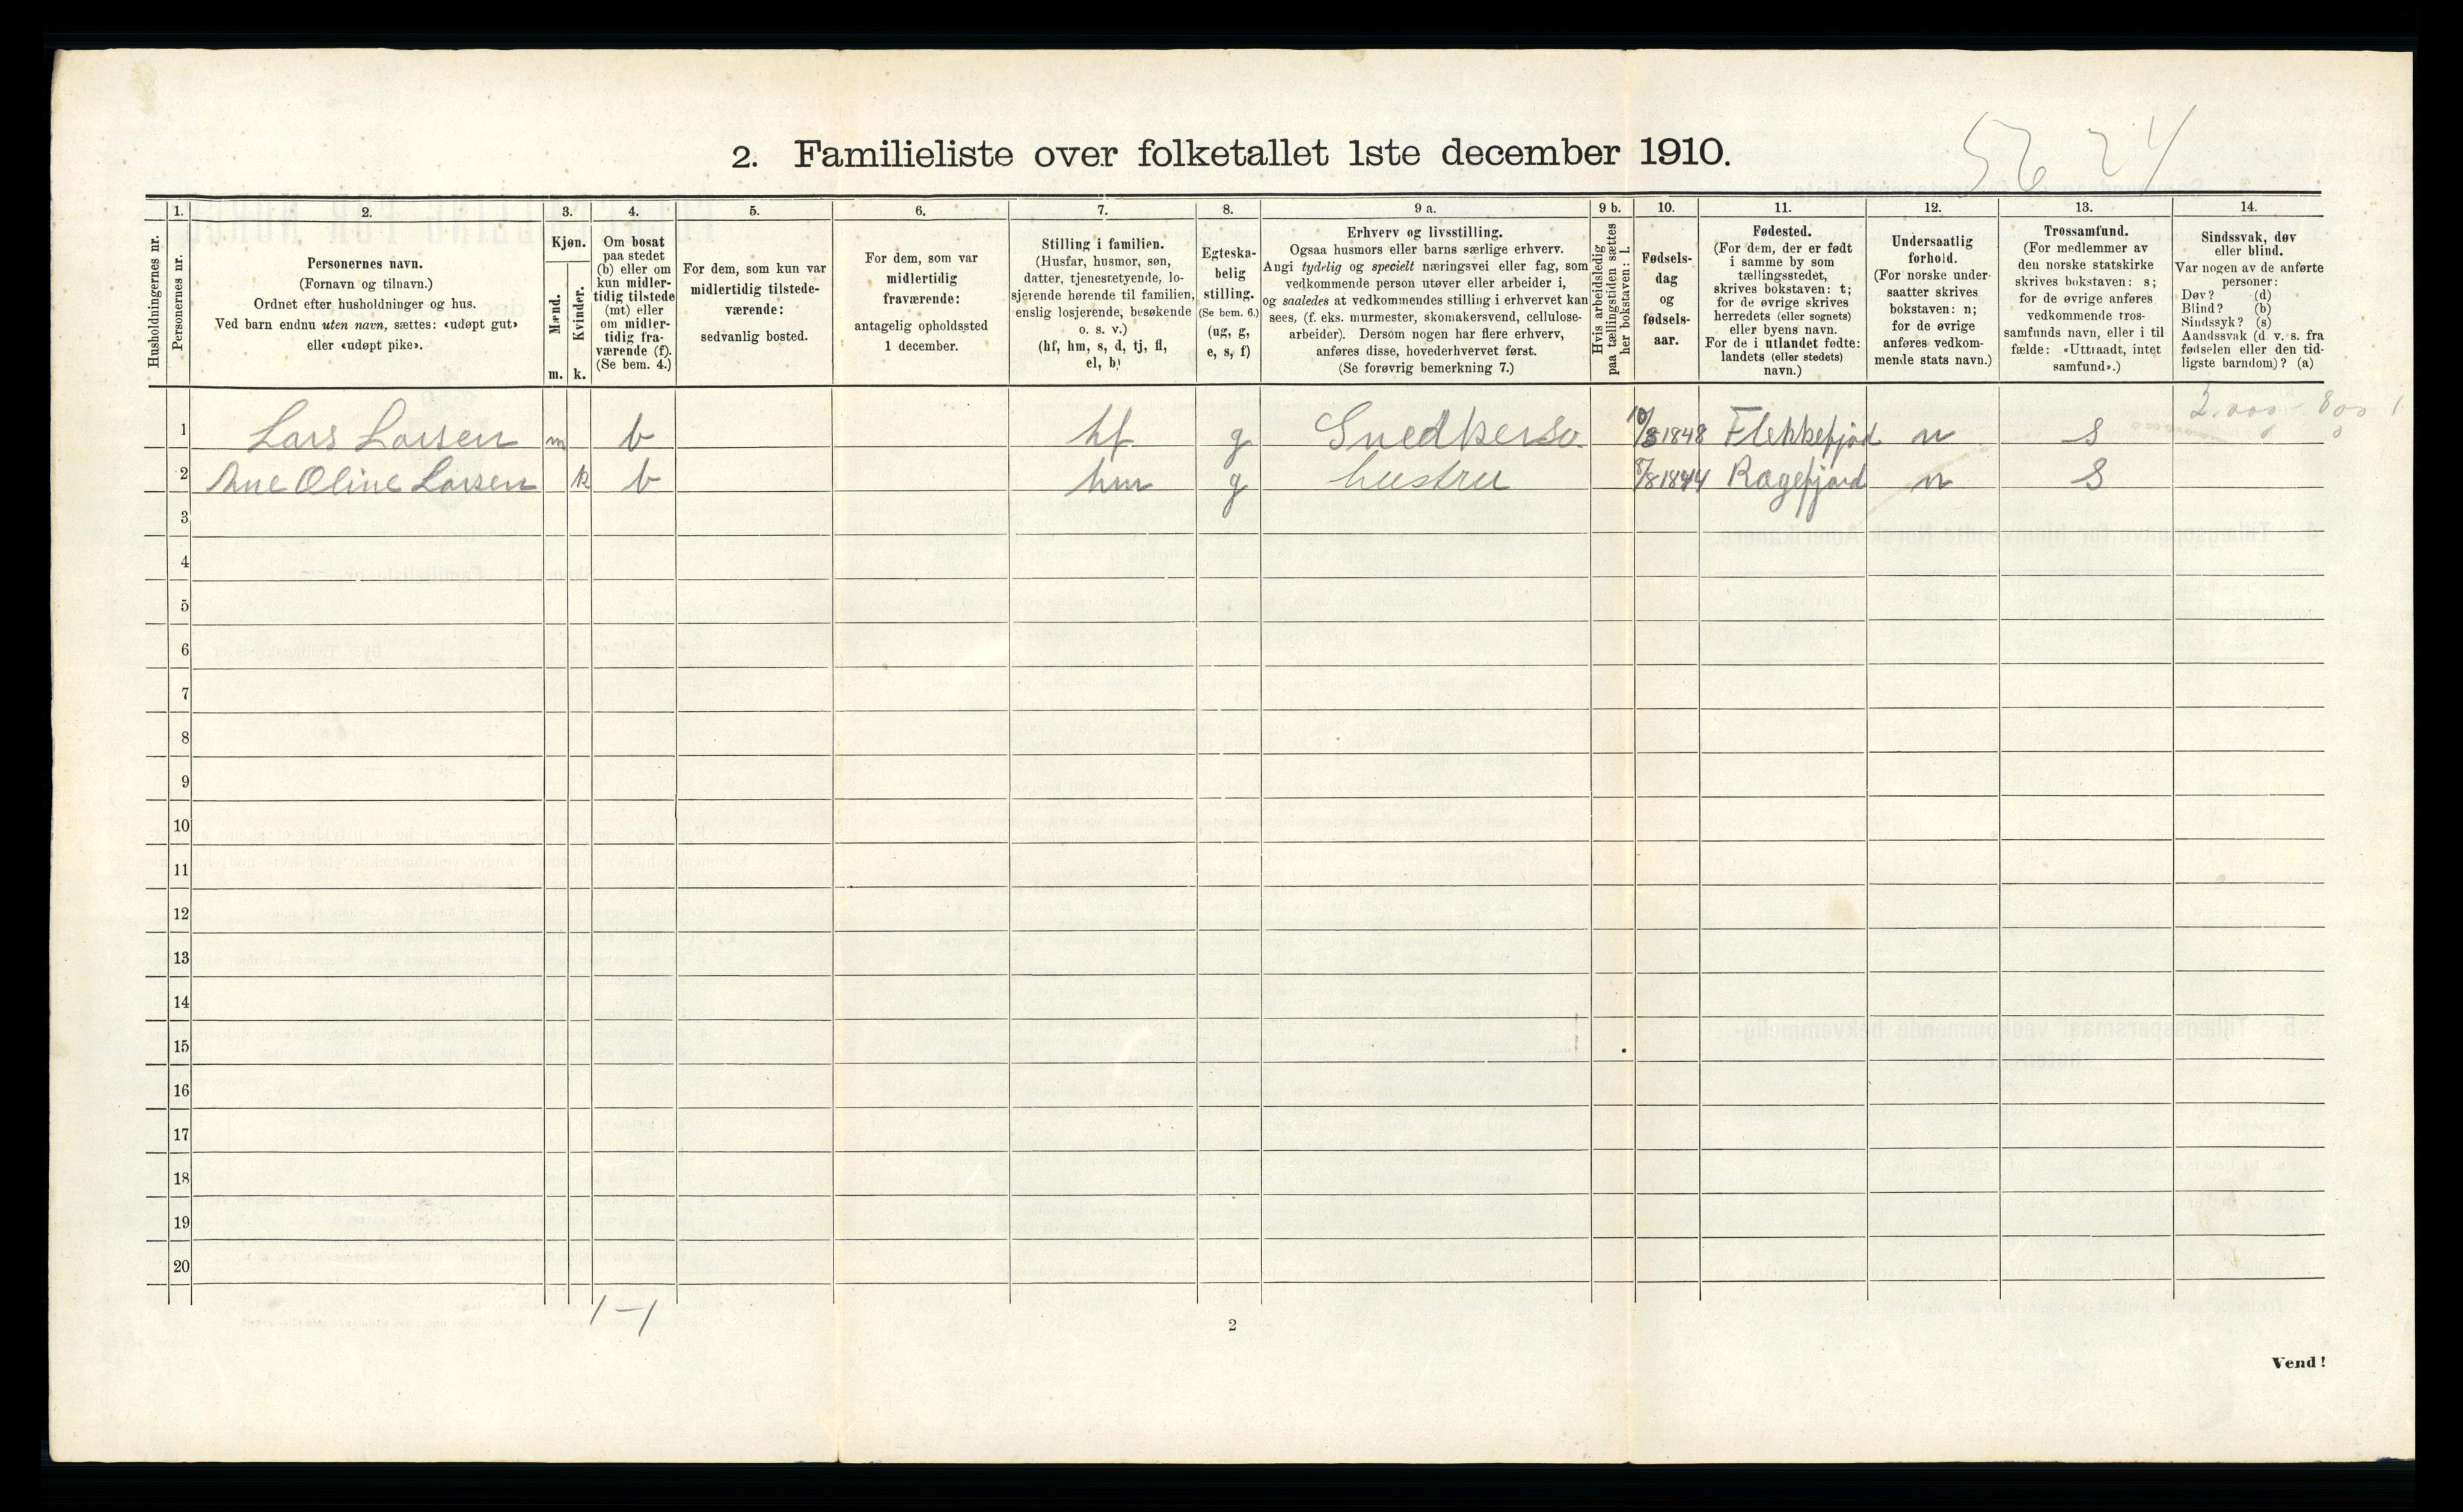 5624
2. Familieliste over folketallet 1ste december 1910.
1. 2. 3. 4. 5. 6. 7. 8. 9 a. 9 b. 10. 11. 12. 13. 14.
Husholdningernes nr.
Personernes nr.
Personernes navn.
(Fornavn og tilnavn.)
Ordnet efter husholdninger og hus.
Ved barn endnu uten navn, sættes: «udøpt gut»
eller «udøpt pike».
Kjøn.
Mænd.
Kvinder.
m. k.
Om bosat
paa stedet
(b) eller om
kun midler-
tidig tilstede
(mt) eller
om midler-
tidig fra-
værende (f).
(Se bem. 4.)
For dem, som kun var
midlertidig tilstede-
værende:
sedvanlig bosted.
For dem, som var
midlertidig
fraværende:
antagelig opholdssted
1 december.
Stilling i familien.
(Husfar, husmor, søn,
datter, tjenestetyende, lo-
sjerende hørende til familien,
enslig losjerende, besøkende
o. s. v.)
(hf, hm, s, d, tj, fl,
el, b)
Egteska-
belig
stilling.
(Se bem. 6.)
(ug, g,
e, s, f)
Erhverv og livsstilling.
Ogsaa husmors eller barns særlige erhverv.
Angi tydelig og specielt næringsvei eller fag, som
vedkommende person utøver eller arbeider i,
og saaledes at vedkommendes stilling i erhvervet kan
sees, (f. eks. murmester, skomakersvend, cellulose-
arbeider). Dersom nogen har flere erhverv,
anføres disse, hovederhvervet først.
(Se forøvrig bemerkning 7.)
Hvis arbeidsledig
paa tællingstiden sættes
her bokstaven: l.
Fødsels-
dag
og
fødsels-
aar.
Fødested.
(For dem, der er født
i samme by som
tællingsstedet,
skrives bokstaven: t;
for de øvrige skrives
herredets (eller sognets)
eller byens navn.
For de i utlandet fødte:
landets (eller stedets)
navn.)
Undersaatlig
forhold.
(For norske under-
saatter skrives
bokstaven: n;
for de øvrige
anføres vedkom-
mende stats navn.)
Trossamfund.
(For medlemmer av
den norske statskirke
skrives bokstaven: s;
for de øvrige anføres
vedkommende tros-
samfunds navn, eller i til
fælde: «Uttraadt, intet
samfund».)
Sindssvak, døv
eller blind.
Var nogen av de anførte
personer:
Døv? (d)
Blind? (b)
Sindssyk? (s)
Aandssvak (d. v. s. fra
fødselen eller den tid-
ligste barndom)? (a)
1 Lars Larsen m b hf g Snedker 1848 Flekkefjord n S
2 Ane Oline Larsen k b hm g hustru 8/8 1844 Ragefjord n S
3
4
5
6
7
8
9
10
11
12
13
14
15
16
17
18
19
20
1-1
2
Vend!